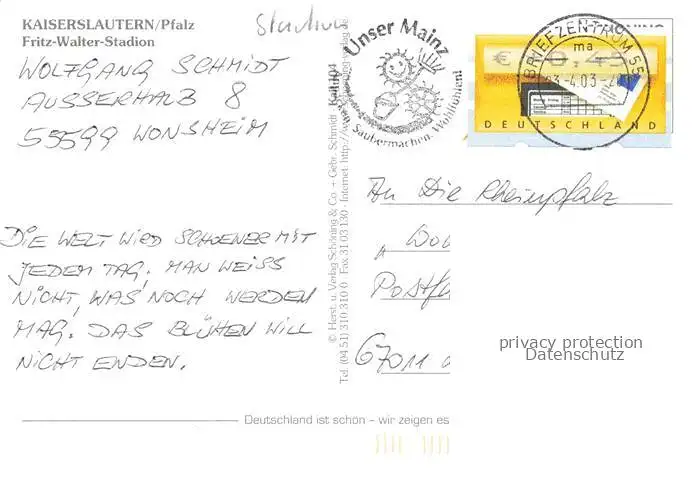 KAISERSLAUTERN/Pfalz
Fritz-Walter-Stadion
WOLFGANG SCHMIDT
AUSSERHALB 8
55599 WONSHEIM
DIE WELT WIRD SCHOENER MIT
JEDEM TAG, MAN WEISS
NICHT, WAS NOCH WERDEN
MAG. DAS BLÜHEN WILL
NICHT ENDEN.
© Herst. u. Verlag Schöning & Co + Gebr. Schmidt
Tel. (04 51) 310 310 0 Fax 31 03 130 · Internet: http://
Unser Mainz
Saubermachen. Wohlfühlen!
BRIEFZENTRUM 55
ma
-4.03-
€ 0,45
DEUTSCHLAND
An Die Rheinpfalz
Postfa
67011
privacy protection
Datenschutz
Deutschland ist schön – wir zeigen es